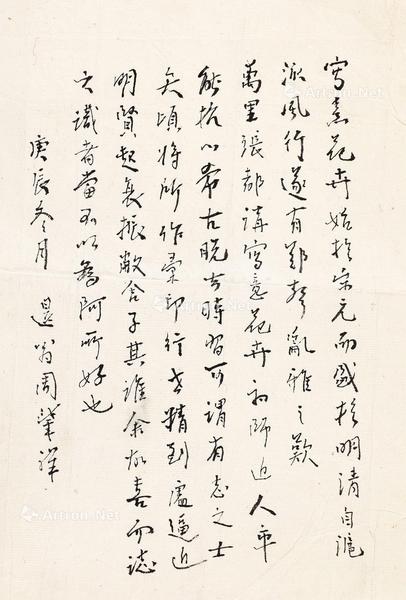 寫意花卉始於宋元而盛於明清自滬
派風行遂有鄭聲亂雅之歎
萬里張都講寫意花卉初師近人卒
能抗心希古脫去時習可謂有志之士
矣頃將所作彙印行世精到處逼近
明賢起衰振敝舍子其誰余故喜而誌
之識者當不以為阿所好也
庚辰冬月 退翁周肇祥
Artron.Net